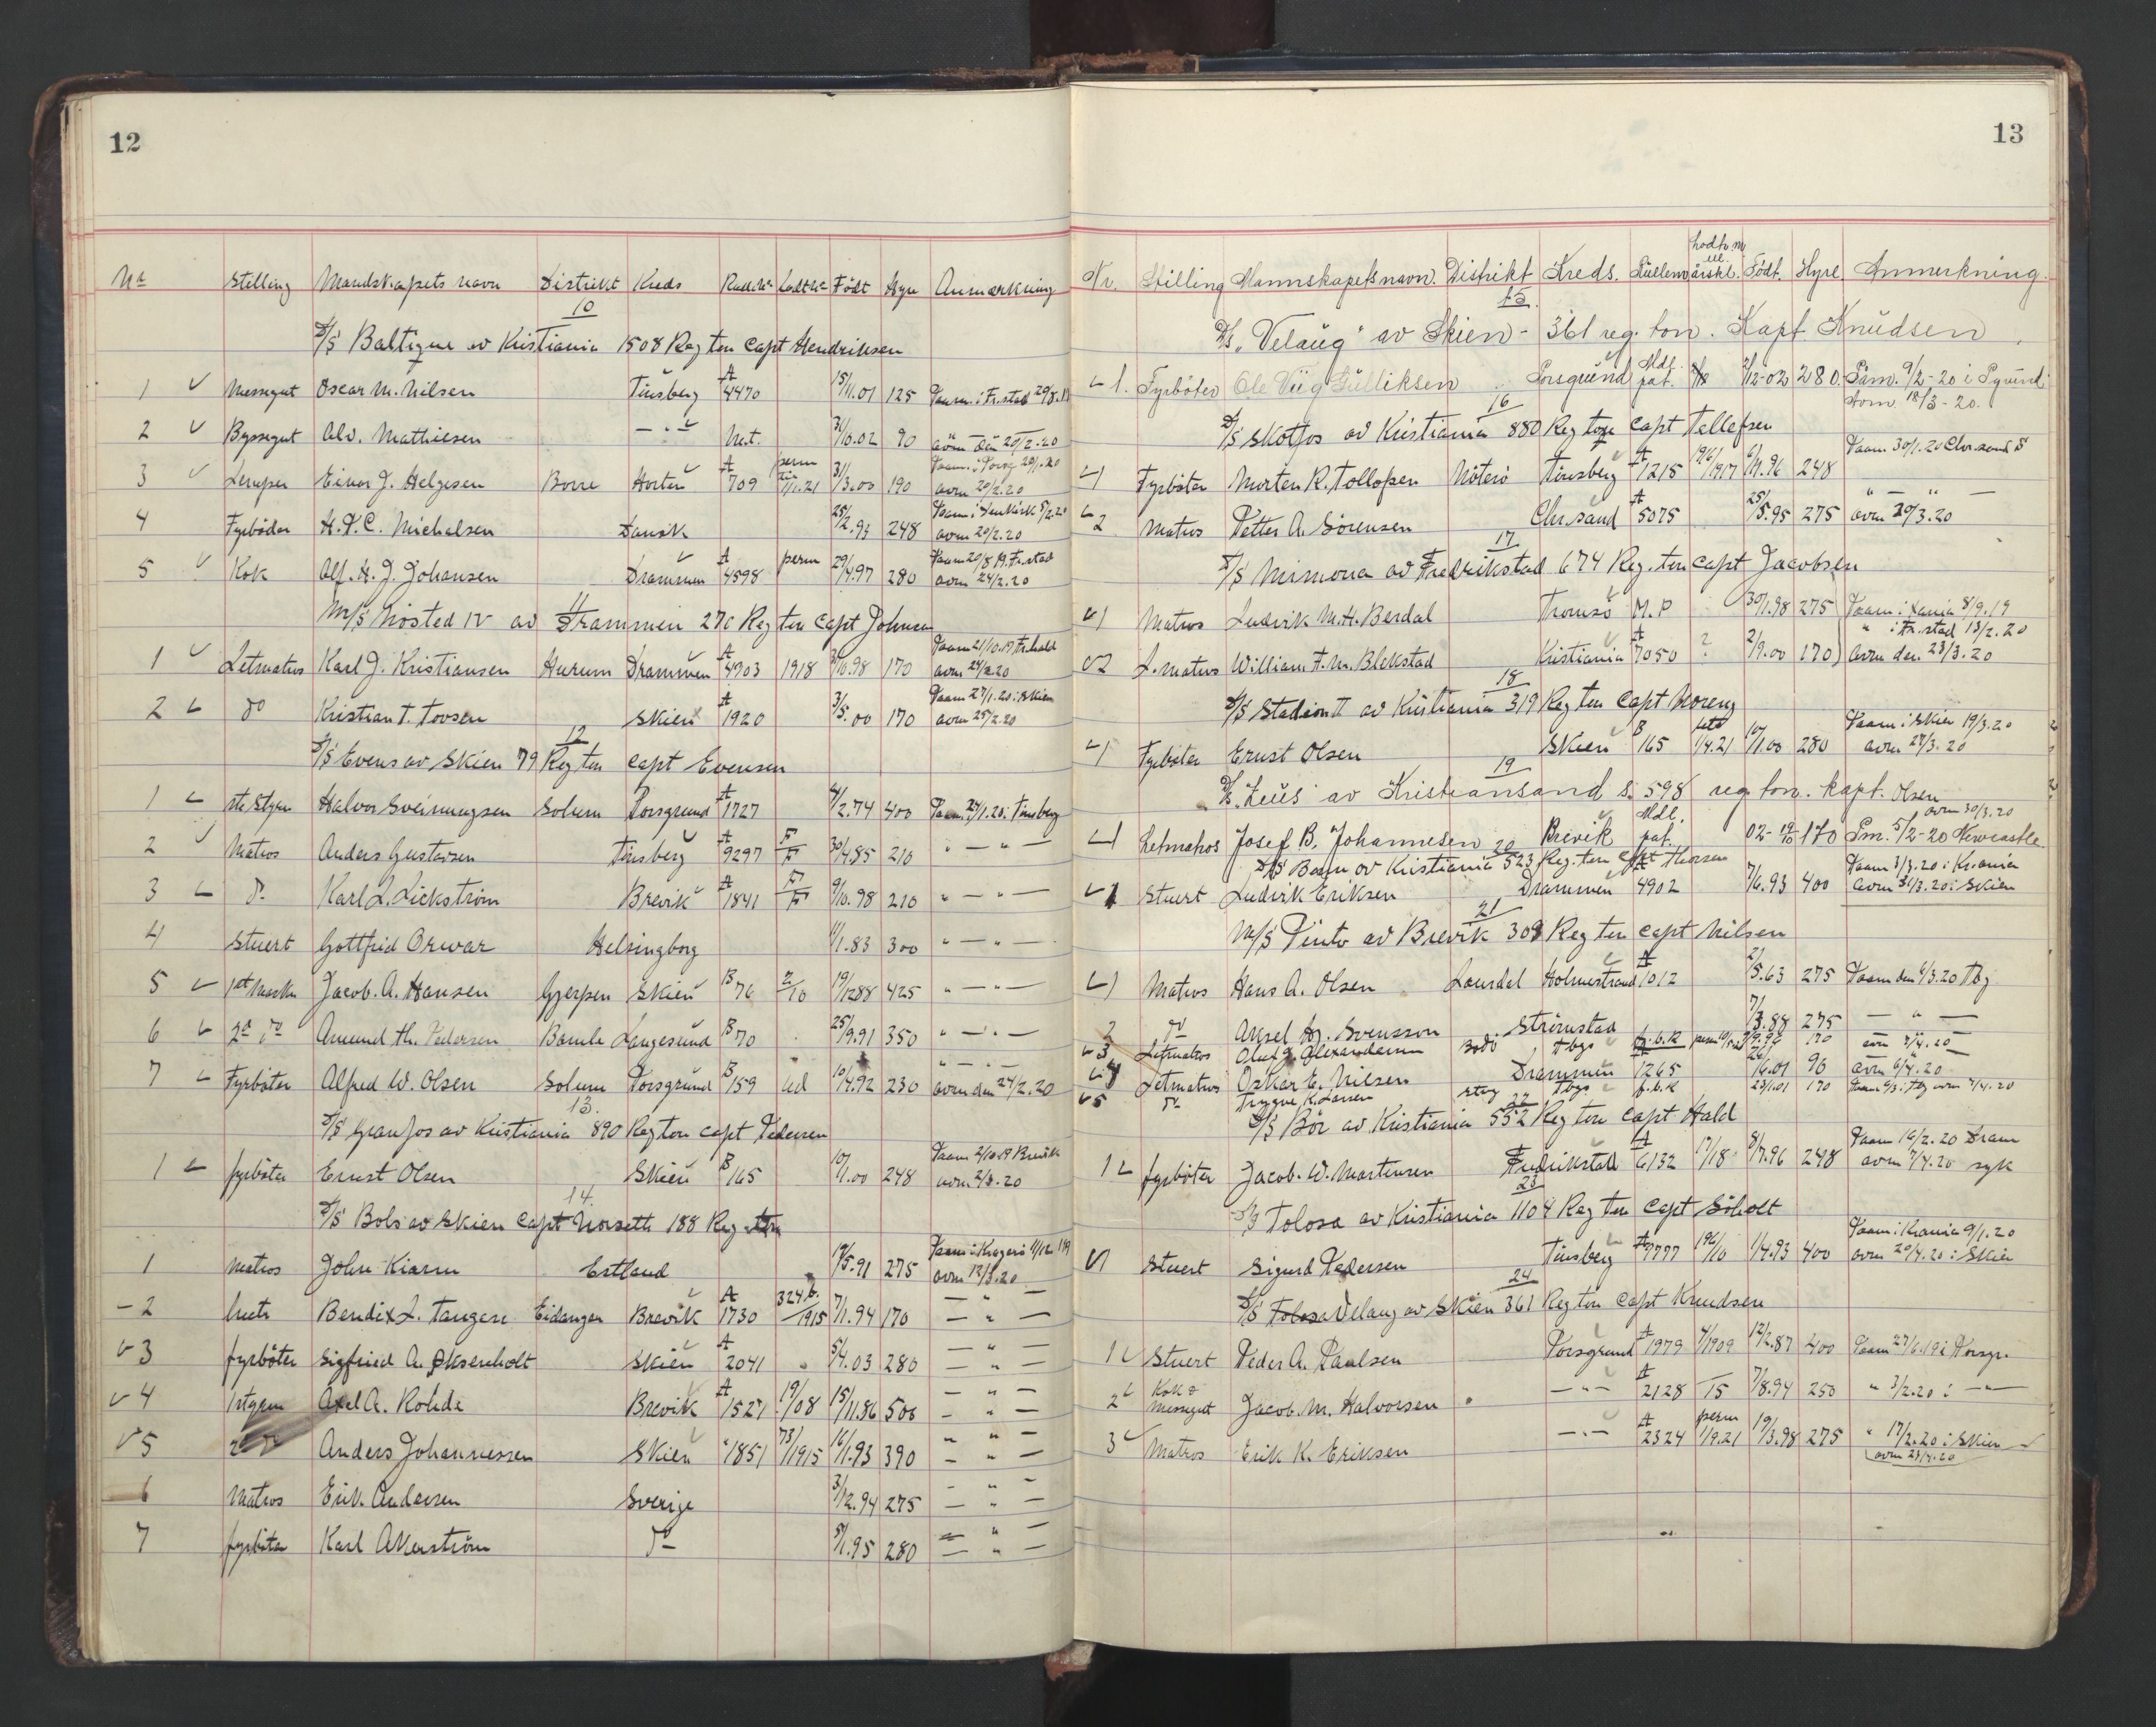 12
Nr Stilling Mandskapets navn Distrikt Kreds Rull.Nr Født Hyre Anmærkning
10
S/S Baltique av Kristiania 1508 Reg ton Capt Hendriksen
1 Messegut Oscar M. Nilsen Tønsberg A 4470 15/11.01 125
2 Byssegut Alv. Mathiesen — " — M.t. 90 avm 20/2.20
3 Lemper Einar J. Helgesen Borre Horten A 709 perm 1/1.21 3/3.00 190 avm 20/2.20
4 Fyrböder H.P.C. Michalsen Dansk 25/2.93 248 avm 20/2.20
5 Kok Alf. H. J. Johansen Drammen A 4598 perm 29/4.97 280 Paam 20/8 19. Fr.stad avm 24/2.20
11
M/S Nösted IV av Drammen 270 Reg ton Capt Johnsen
1 Letmatros Karl J. Kristiansen Hurum Drammen A 4903 1918 /10.98 170 Paam 21/10.19 Fr.hald avm 24/2.20
2 do Kristian T. Tovsen Skien A 1920 3/5.00 170 Paam 27/1.20 i Skien avm 25/2.20
12
S/S Evens av Skien 79 Reg ton Capt Evensen
1 Halvor Sveinungsen Solum Porsgrund A 1727 4/2.74 400 Paam. 27/1.20 i Tønsberg
2 Matros Anders Gustavsen Tønsberg A 9297 30/4.85 210 " — " —
3 do Karl L. Lickström Brevik A 1841 9/10.98 210 " — " —
4 Stuert Gottfried Orwar Helsingborg 11/1.83 300 " — " —
5 1st Mask Jacob. A. Hansen Gjerpen Skien B 76 2/10 19/12 88 425 " — " —
6 2d do Amund Th. Pedersen Bamle Langesund B 70 25/9.91 350 " — " —
7 Fyrböter Alfred W. Olsen Solum Porsgrund B 159 ud 10/4.92 230 avm den 24/2.20
13.
S/S Granfos av Kristiania 890 Reg ton Capt Pedersen
1 fyrböter Ernst Olsen Skien B 165 10/1.00 248 Paam 2/10.19 Brevik avm 2/3.20
14.
S/S Bols av Skien Capt Norseth 188 Reg ton
1 Matros John Kiarm Estland 17/5.91 275 Paam i Kragerö avm 12/3.20
2 Bendix L. Tangen Eidanger Brevik A 1730 324 b/1915 7/1.94 170 — " —
3 fyrböter Sigfried A. Øksenholt Skien A 2041 " 5/4.03 280 — " —
4 1styrm Axel A. Rohde Brevik A 1527 19/08 15/11.86 506 — " —
5 2 do Anders Johannessen Skien " 1851 73/1915 16/1.93 390 — " —
6 Matros Erik Andersen Sverige 3/12.94 275 — " —
7 fyrböter Karl Akerström do 5/1.95 280 — " —
13
Nr. Stilling Mannskapets navn. Distrikt Kreds. Rullenr årskl. Født. Hyre Anmerkning.
15.
D/S "Velaug" av Skien - 361 reg. ton. Kapt. Knudsen
1. Fyrböter Ole Viig Gulliksen Porsgrund Mdl. pat. 7/12-02 280. Påm. 9/2-20 i Pgrund. Avm. 18/3-20.
16
S/S Skotfos av Kristiania 880 Reg ton Capt Tellefsen
1 Fyrböter Morten R. Tollofsen Nöterö Tönsberg A 1215 1917 6/11.96 248 Paam 30/1.20 Chr.sand S
2 Matros Petter A. Sörensen Chr.sand A 5075 25/5.95 275 avm 20/3.20
17
S/S Mimona av Fredrikstad 674 Reg. ton Capt Jacobsen
1 Matros Ludvik M.H. Berdal Tromsö M.P 30/1.98 275 Paam i Xania 8/9.19
" i Fr.stad 13/2.20
2 L. matros William F.M. Blekstad Kristiania A 7050 ? 2/9.00 170 avm den 23/3.20
18
S/S Stadion II av Kristiania 319 Reg ton Capt Moreng
1 Fyrböter Ernst Olsen Skien B 165 1/4.21 10/1.00 280 Paam i Skien 19/3.20 avm 27/3.20
19
D/S "Zeus" av Kristiansand S. 598 reg ton. kapt. Olsen
avm 30/3.20
1 Letmatros Josef B. Johannesen Brevik Mdl. pat. 170 Pm. 5/2-20 Newcastle
20
S/S Bern av Kristiania 523 Reg. ton Capt Thorsen
1 Stuert Ludvik Eriksen Drammen A 4902 7/6.93 400 Paam 3/3.20 i Krania avm 31/3.20 i Skien
21
M/S Pinto av Brevik 309 Reg ton Capt Nilsen
1 Matros Hans A. Olsen Laurdal Holmestrand A 1012 2/5.63 275 Paam den 6/3.20 Tbg
2 do Aksel Hj. Svensson Strömstad 7/3.88 275 — " —
3 Letmatros Olaf G. Alexandersen Bodö Tbgs 170 avm 7/4.20
4 Letmatros Oskar E. Nilsen Drammen A 1265 /6.01 90 avm 6/4.20
5 do Trygve K. Larsen Tbgs f.b.K 23/1.01 170
22
S/S Bör av Kristiania 552 Reg ton Capt Hald
1 fyrböter Jacob. W. Martinsen Fredrikstad A 6132 17/18 8/7.96 248 Paam 16/2.20 Dram avm 7/4.20 syk
23
S/S Tolosa av Kristiania 1104 Reg ton Capt Söholt
1 Stuert Sigurd Pedersen Tönsberg A 7777 196/10 1/4.93 400 Paam i Krania 9/1.20 avm 20/4.20 i Skien
24
S/S Tolosa Velaug av Skien 361 Reg ton Capt Knudsen
1 Stuert Peder A. Paulsen Porsgrund A 1979 4/1909 12/2.87 400 Paam 27/6.19 i Porsgr.
2 Kok & Messegut Jacob. M. Halvorsen — " — A 2128 15 7/8.94 250 " 3/2.20 i — " —
3 Matros Erik K. Eriksen — " — A 2324 perm 1/9.21 19/3.98 275 " 17/2.20 i Skien
avm 23/4.20